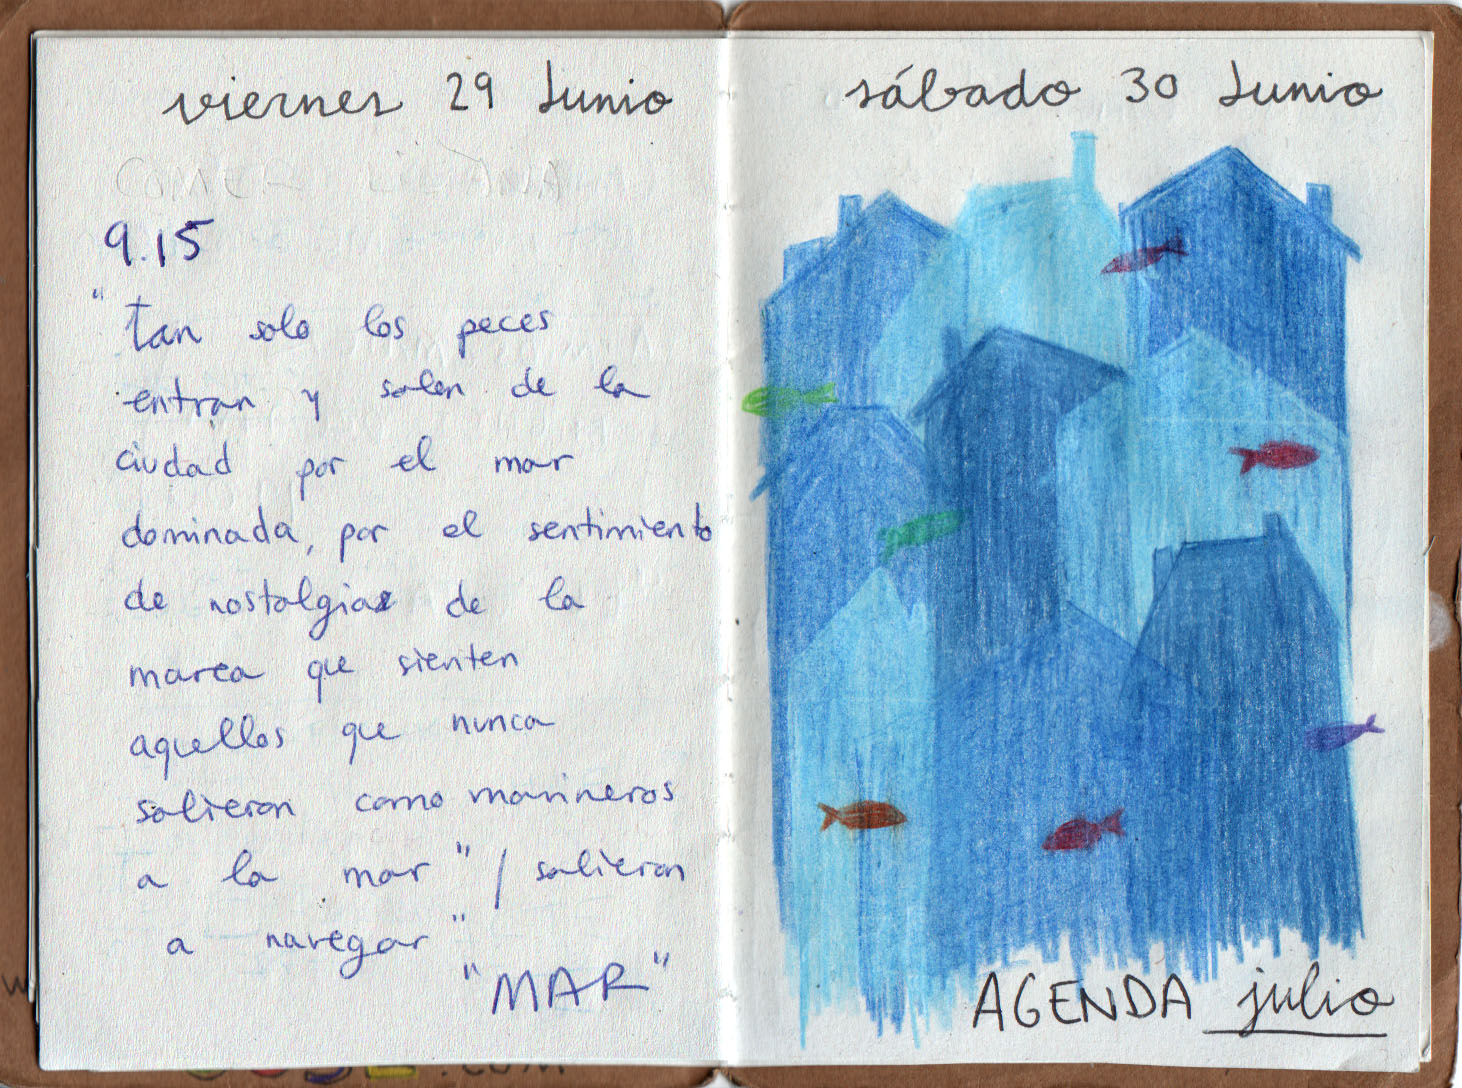 viernes 29 Junio
9.15
"tan solo los peces
entran y salen de la
ciudad por el mar
dominada, por el sentimiento
de nostalgia de la
marea que sienten
aquellos que nunca
salieron como marineros
a la mar" / salieron
a navegar"
"MAR"
sábado 30 Junio
AGENDA julio
.com